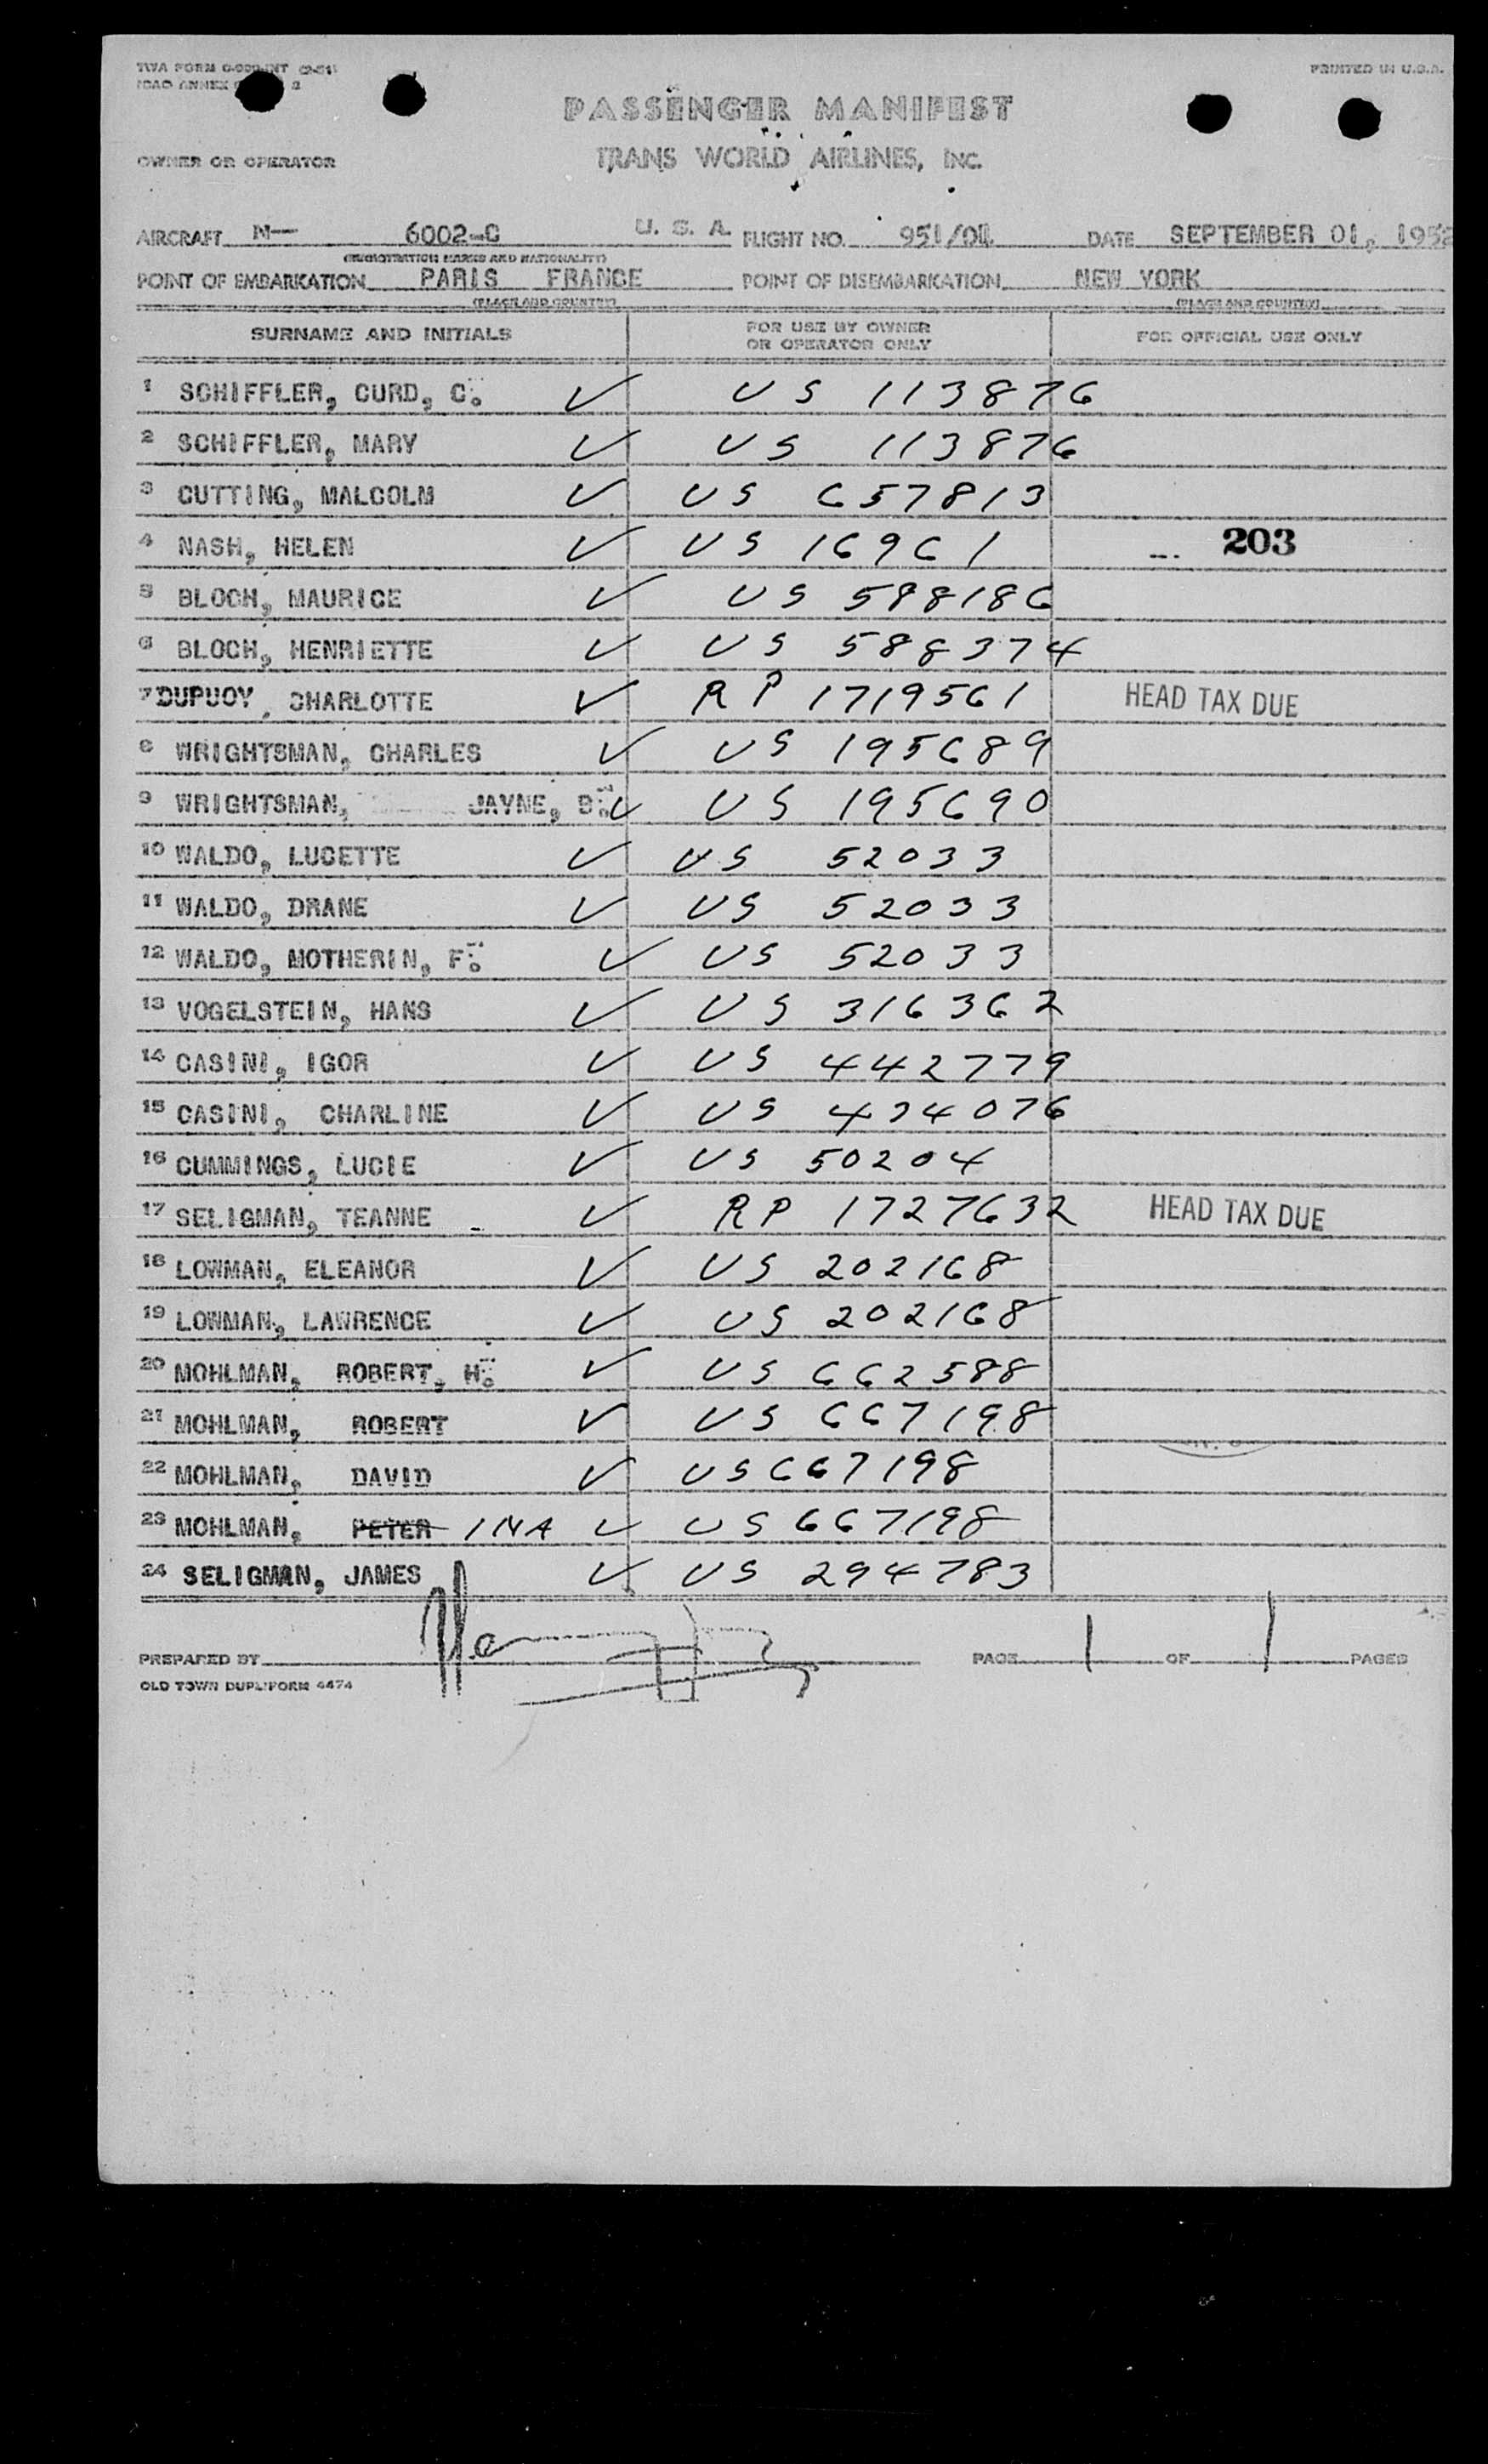 TWA FORM O-900-INT (2-51)
ICAO ANNEX 9 2
PRINTED IN U.S.A.
PASSENGER MANIFEST
OWNER OR OPERATOR
TRANS WORLD AIRLINES, INC.
AIRCRAFT N— 6002-C U. S. A. FLIGHT NO. 951/01 DATE SEPTEMBER 01, 1952
(REGISTRATION MARKS AND NATIONALITY)
POINT OF EMBARKATION PARIS FRANCE POINT OF DISEMBARKATION NEW YORK
(PLACE AND COUNTRY) (PLACE AND COUNTRY)
SURNAME AND INITIALS FOR USE BY OWNER OR OPERATOR ONLY FOR OFFICIAL USE ONLY
1 SCHIFFLER, CURD, C. ✓ US 113876
2 SCHIFFLER, MARY ✓ US 113876
3 CUTTING, MALCOLM ✓ US 657813
4 NASH, HELEN ✓ US 16961 203
5 BLOCH, MAURICE ✓ US 588186
6 BLOCH, HENRIETTE ✓ US 588374
7 DUPUOY, CHARLOTTE ✓ RP 1719561 HEAD TAX DUE
8 WRIGHTSMAN, CHARLES ✓ US 195689
9 WRIGHTSMAN, JAYNE, B. ✓ US 195690
10 WALDO, LUCETTE ✓ US 52033
11 WALDO, DRANE ✓ US 52033
12 WALDO, MOTHERIN, F. ✓ US 52033
13 VOGELSTEIN, HANS ✓ US 316362
14 CASINI, IGOR ✓ US 442779
15 CASINI, CHARLINE ✓ US 424076
16 CUMMINGS, LUCIE ✓ US 50204
17 SELIGMAN, TEANNE - ✓ RP 1727632 HEAD TAX DUE
18 LOWMAN, ELEANOR ✓ US 202168
19 LOWMAN, LAWRENCE ✓ US 202168
20 MOHLMAN, ROBERT, H. ✓ US 662588
21 MOHLMAN, ROBERT ✓ US 667198
22 MOHLMAN, DAVID ✓ US 667198
23 MOHLMAN, PETER INA ✓ US 667198
24 SELIGMAN, JAMES ✓ US 294783
PREPARED BY PAGE 1 OF 1 PAGES
OLD TOWN DUPLIFORM 4474